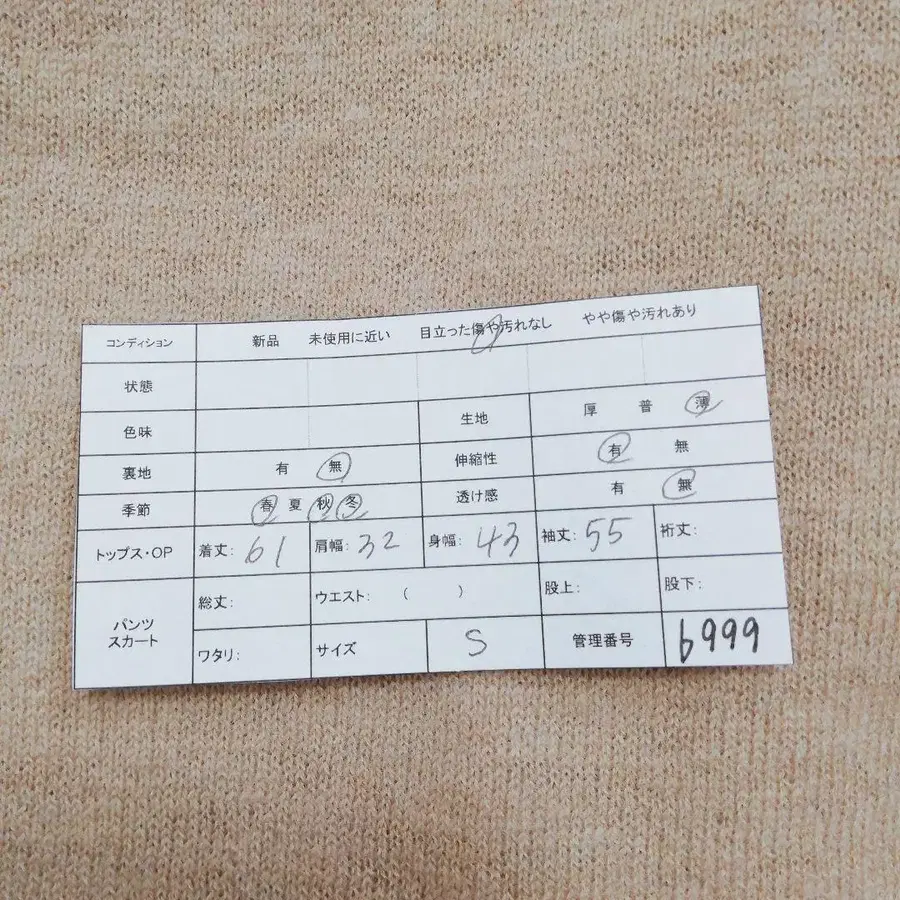 コンディション 新品 未使用に近い 目立った傷や汚れなし やや傷や汚れあり
状態
色味 生地 厚 普 薄
裏地 有 無 伸縮性 有 無
季節 春 夏 秋 冬 透け感 有 無
トップス・OP 着丈: 61 肩幅: 32 身幅: 43 袖丈: 55 裄丈:
パンツ スカート 総丈: ウエスト: ( ) 股上: 股下:
ワタリ: サイズ S 管理番号 6999